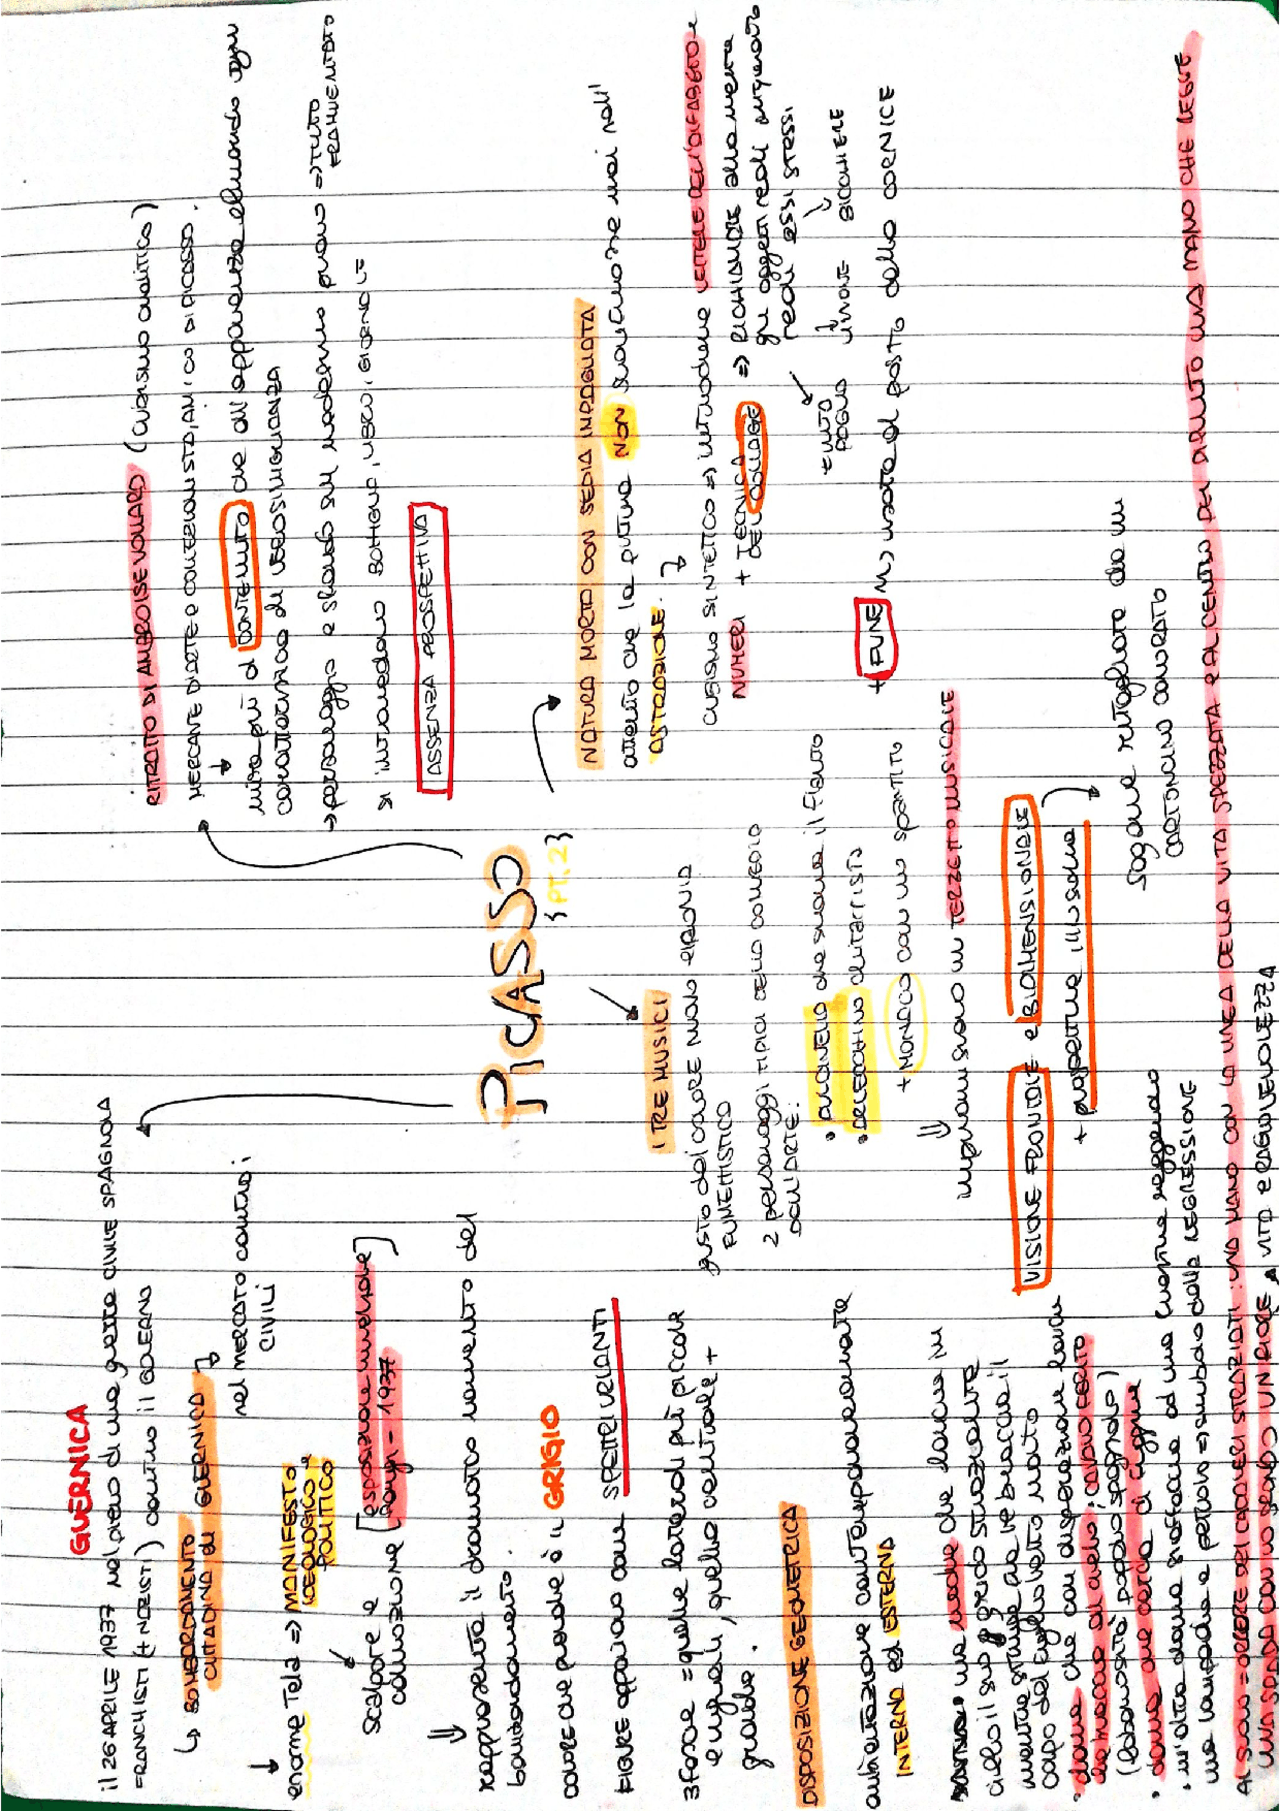 PICASSO
{PT.2}
GUERNICA
il 26 APRILE 1937 nel pieno di una guerra CIVILE SPAGNOLA
FRANCHISTI (+ NAZISTI) contro il GOVERNO
↳ BOMBARDAMENTO
CITTADINA di GUERNICA
nel MERCATO contro i
CIVILI
enorme Tela => MANIFESTO
IDEOLOGICO e
POLITICO
scalpore e [esposizione universale]
commozione [Parigi - 1937
rappresenta il drammatico momento del
bombardamento.
COLORE che prevale è il GRIGIO
FIGURE appaiono come SPETTRI URLANTI
3 fasce = quelle laterali più piccole
e uguali, quella centrale +
grande.
DISPOSIZIONE GEOMETRICA
ambientazione contemporaneamente
INTERNA ed ESTERNA
una madre che lancia in
cielo il suo grido straziante
mentre stringe tra le braccia il
corpo del figlioletto morto
• donna che con disperazione
la mano al cielo; CAVALLO FERITO
(popolo spagnolo)
• donna che cerca di fuggire
• un'altra donna si affaccia ad una finestra reggendo
una lampada a petrolio => simbolo della REGRESSIONE
AL SUOLO = ORRORE DEI CADAVERI STRAZIATI: UNA MANO CON LA LINEA DELLA VITA SPEZZATA E AL CENTRO DEL DIPINTO UNA MANO CHE REGGE
UNA SPADA CON LO SFONDO UN FIORE VITA E RAGIONEVOLEZZA
RITRATTO DI AMBROISE VOLLARD (Cubismo analitico)
MERCANTE D'ARTE e COLLEZIONISTA, AMICO DI PICASSO.
mira più al CONTENUTO che all'apparenza eliminando ogni
caratteristica di VEROSIMIGLIANZA
→ personaggio e sfondo sul medesimo piano => TUTTO
FRAMMENTATO
si intravedono BOTTIGLIA, LIBRO, GIORNALE
ASSENZA PROSPETTIVA
NATURA MORTA CON SEDIA IMPAGLIATA
attento che la pittura NON sconfinasse mai nell'
ASTRAZIONE.
CUBISMO SINTETICO => introduce LETTERE DELL'ALFABETO e
NUMERI + TECNICA
DEL COLLAGE => RICHIAMARE alla mente
gli oggetti reali
reali ESSI STESSI
FOGLIO LIMONE BICCHIERE
+ FUNE usata al posto della CORNICE
I TRE MUSICI
gusto del COLORE MOLTO e IRONIA
FUMETTISTICO
2 personaggi TIPICI DELLA COMMEDIA
DELL'ARTE:
• PULCINELLA che suona il flauto
• ARLECCHINO chitarrista
+ MONACO con uno spartito
improvvisano un TERZETTO MUSICALE
VISIONE FRONTALE e BIDIMENSIONALE
+ prospettiva illusoria
sagome ritagliate da un
CARTONCINO COLORATO